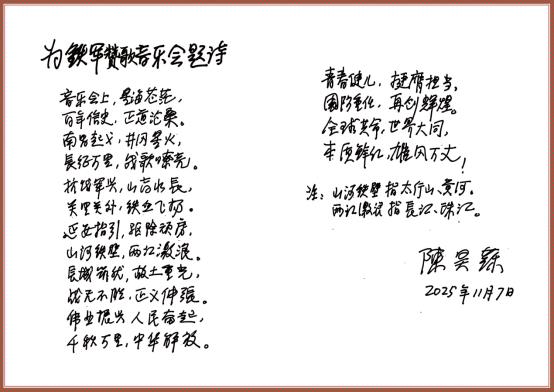 为鉄军赞歌音乐会题诗
音乐会上,
百年信史,正道沧桑。
南昌起义,井冈星火,
長征万里,战歌嘹亮。
抗战军兴,山高水長,
关里关外,铁血飞扬。
延安指引,驱除顽虏,
山河铁壁,两江激浪。
長城 故土重光,
战无不胜,正义伸張。
伟业振兴,人民奋起,
千秋万里,中华解放。
青春健儿,挺膺担当。
国防 再创辉煌。
全球革命,世界大同,
军旗鲜红,雄风万丈!
注:山河铁壁指太行山、黄河。
两江激浪指長江、珠江。
陳昊蘇
2025年11月7日